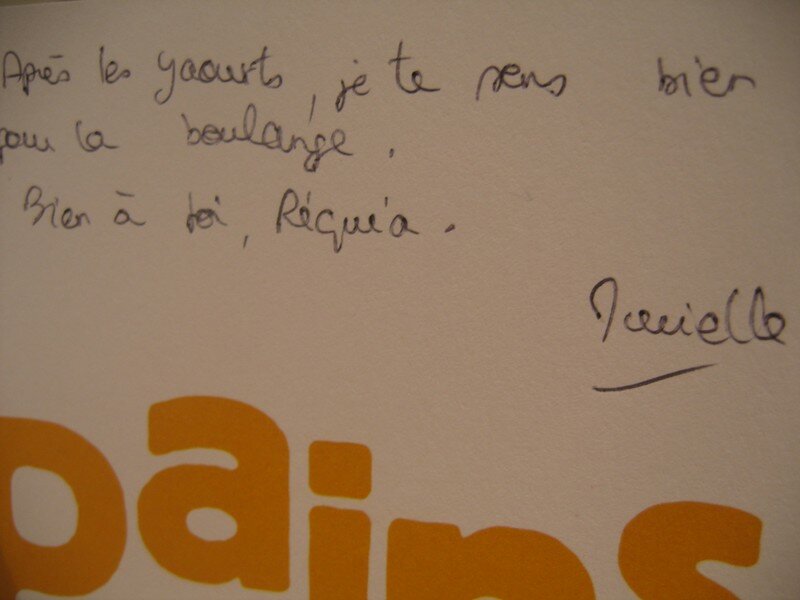 Après les yaourts, je te sens bien
pour la boulange.
Bien à toi, Réquia.
Danielle
pains